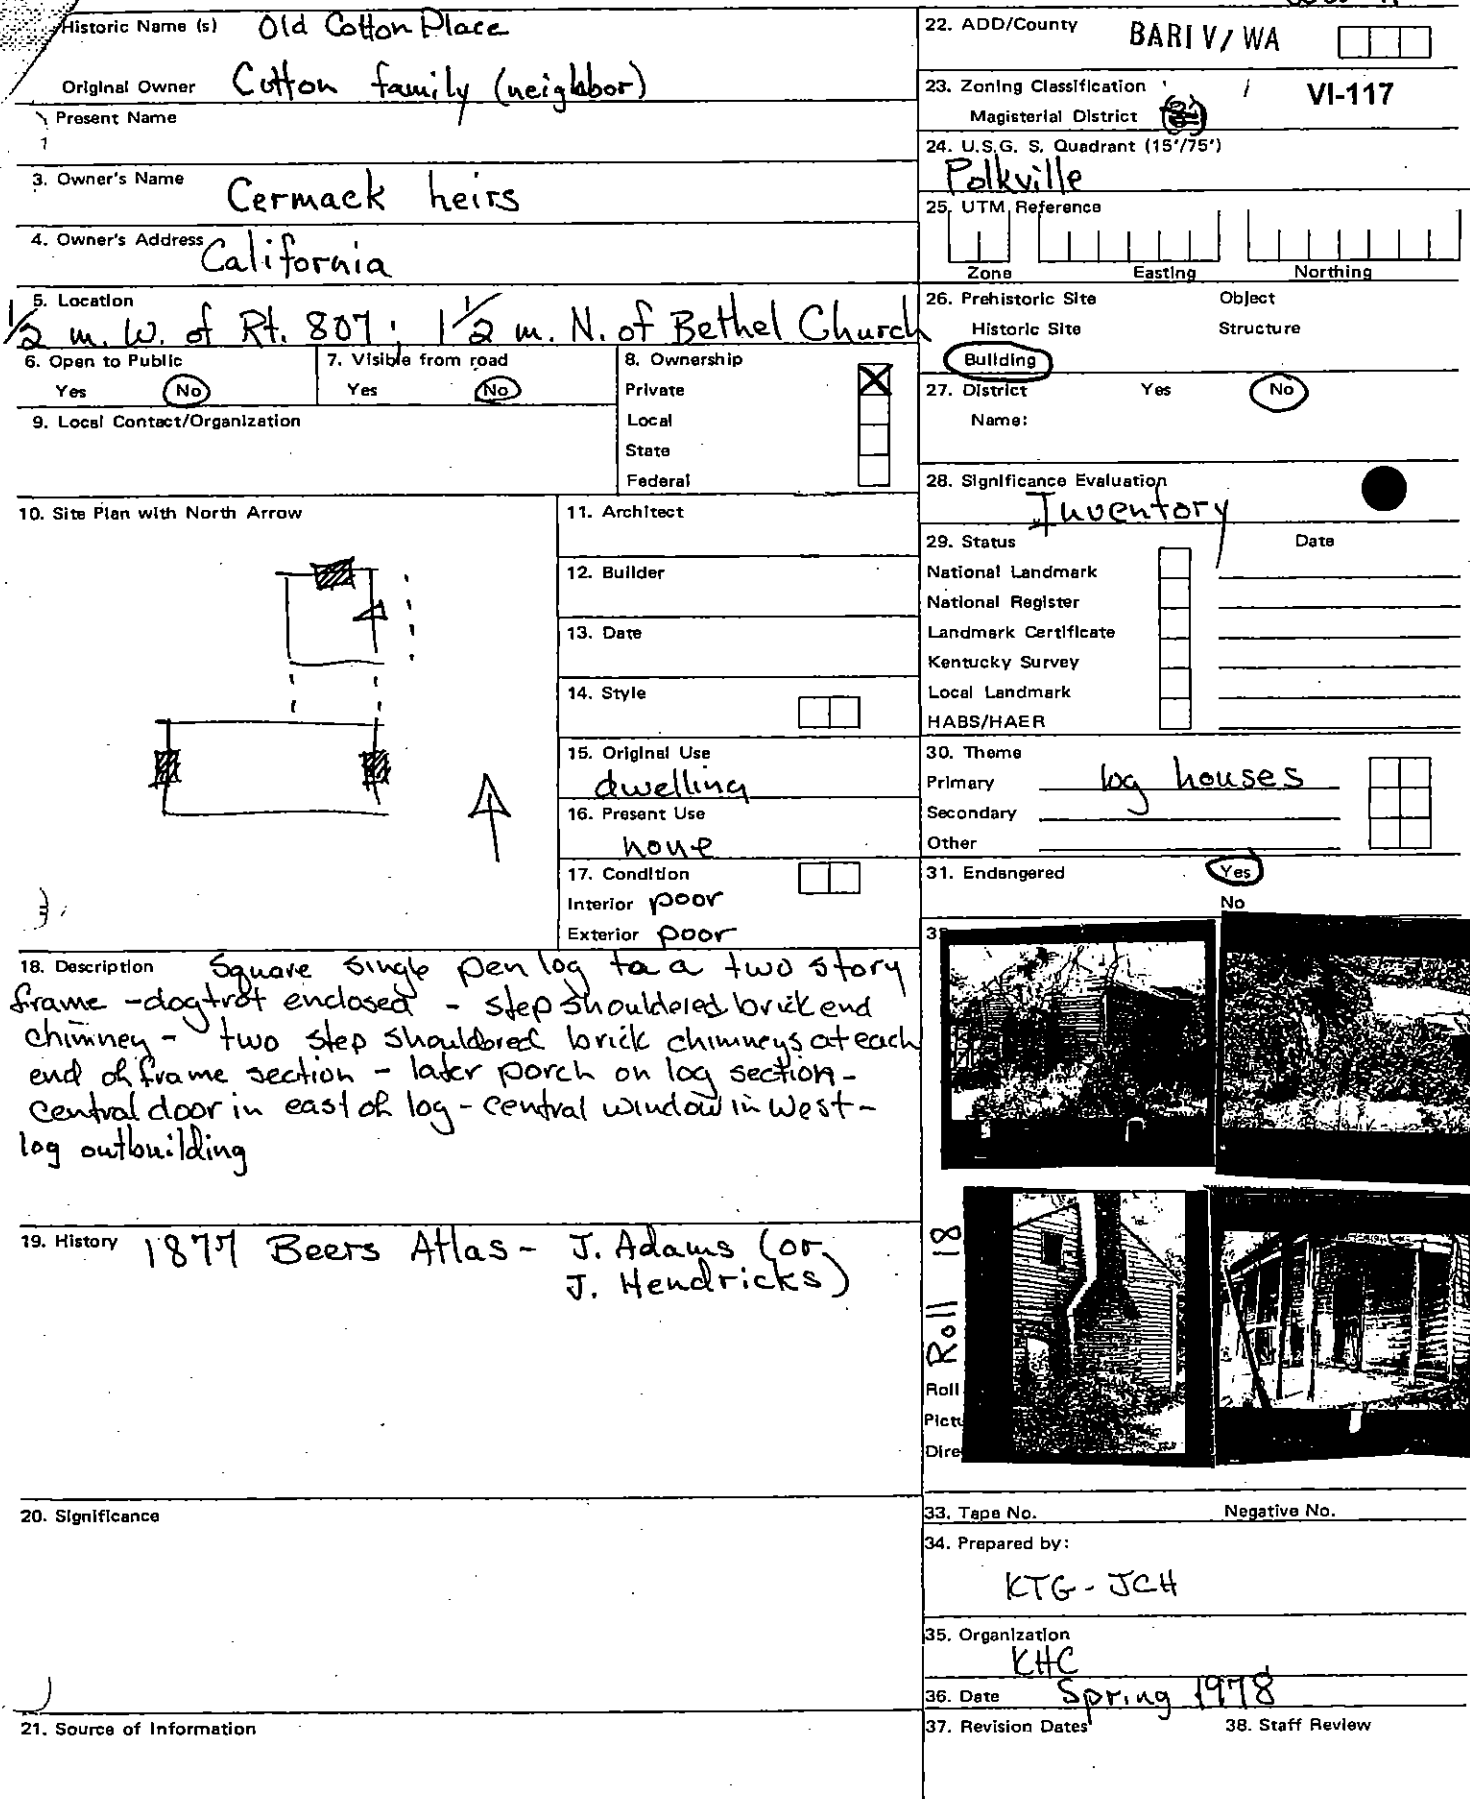 Historic Name (s) Old Cotton Place
Original Owner Cotton family (neighbor)
Present Name
3. Owner's Name Cermack heirs
4. Owner's Address California
5. Location
1/2 m. W. of Rt. 807; 1 1/2 m. N. of Bethel Church
6. Open to Public
Yes No
7. Visible from road
Yes No
8. Ownership
Private X
Local
State
Federal
9. Local Contact/Organization
10. Site Plan with North Arrow
11. Architect
12. Builder
13. Date
14. Style
15. Original Use
dwelling
16. Present Use
none
17. Condition
Interior poor
Exterior poor
18. Description Square single pen log to a two story
frame - dogtrot enclosed - step shouldered brick end
chimney - two step shouldored brick chimneys at each
end of frame section - later porch on log section -
central door in east of log - central window in west -
log outbuilding
19. History 1877 Beers Atlas - J. Adams (or
J. Hendricks)
20. Significance
21. Source of Information
22. ADD/County BARIV/WA
23. Zoning Classification
VI-117
Magisterial District
24. U.S.G. S. Quadrant (15'/75')
Polkville
25. UTM Reference
Zone Easting Northing
26. Prehistoric Site Object
Historic Site Structure
Building
27. District Yes No
Name:
28. Significance Evaluation
Inventory
29. Status Date
National Landmark
National Register
Landmark Certificate
Kentucky Survey
Local Landmark
HABS/HAER
30. Theme
Primary log houses
Secondary
Other
31. Endangered Yes
No
Roll 18
Roll
33. Tape No. Negative No.
34. Prepared by:
KTG - JCH
35. Organization
KHC
36. Date Spring 1978
37. Revision Dates 38. Staff Review